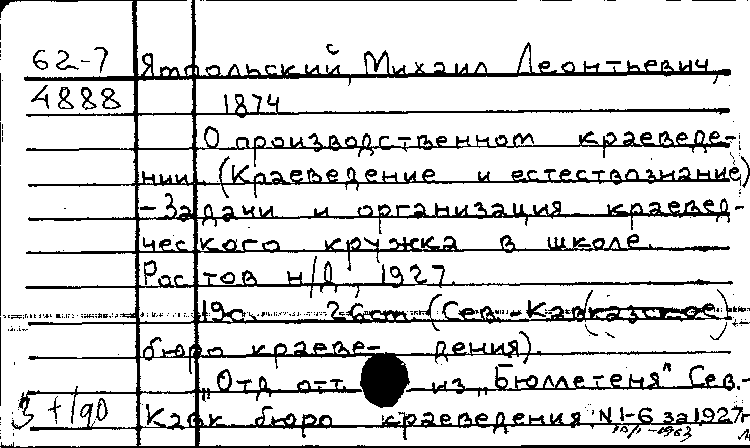 62-7 Ятпольский, Михаил Леонтьевич,
4888 1874
О производственном краеведе-
нии. (Краеведение и естествознание)
- Задачи и организация краевед-
ческого кружка в школе.
Ростов н/Д, 1927.
19с. 26cm (Сев.-Кавказское)
бюро краеве- дения).
"Отд. отт. из "Бюллетеня" Сев.-
Кавк. бюро краеведения. N1-6 за 1927г